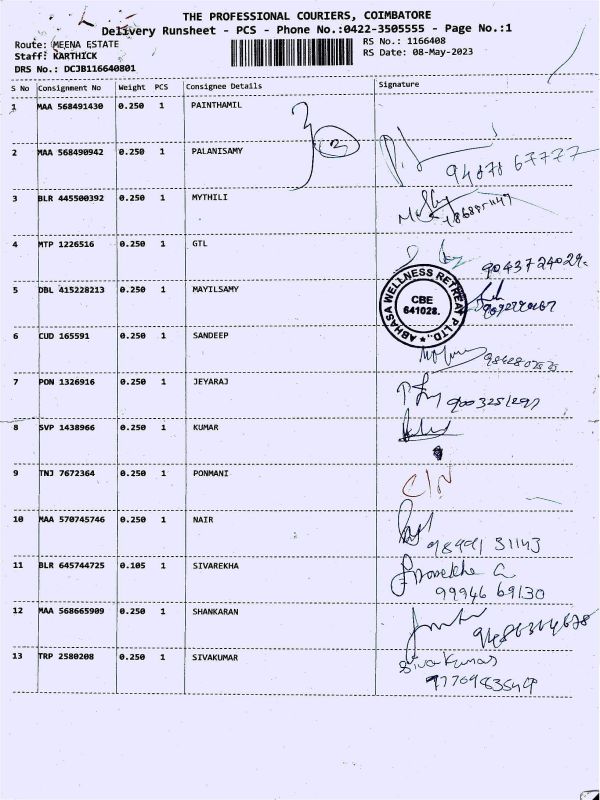 THE PROFESSIONAL COURIERS, COIMBATORE
Delivery Runsheet - PCS - Phone No.:0422-3505555 - Page No.:1
Route: MEENA ESTATE
RS No.: 1166408
Staff: KARTHICK
RS Date: 08-May-2023
DRS No.: DCJB116640801
S No Consignment No Weight PCS Consignee Details Signature
1 MAA 568491430 0.250 1 PAINTHAMIL
3
2 MAA 568490942 0.250 1 PALANISAMY
94878 67777
3 BLR 445500392 0.250 1 MYTHILI
4 MTP 1226516 0.250 1 GTL
9043724029
5 DBL 415228213 0.250 1 MAYILSAMY
ABHASA WELLNESS RETREAT P LTD.,
CBE
641028.
6 CUD 165591 0.250 1 SANDEEP
7 PON 1326916 0.250 1 JEYARAJ
9003251297
8 SVP 1438966 0.250 1 KUMAR
9 TNJ 7672364 0.250 1 PONMANI
C/N
10 MAA 570745746 0.250 1 NAIR
98491 31143
11 BLR 645744725 0.105 1 SIVAREKHA
Sivarekha G
99946 69130
12 MAA 568665909 0.250 1 SHANKARAN
13 TRP 2580208 0.250 1 SIVAKUMAR
Sivakumar